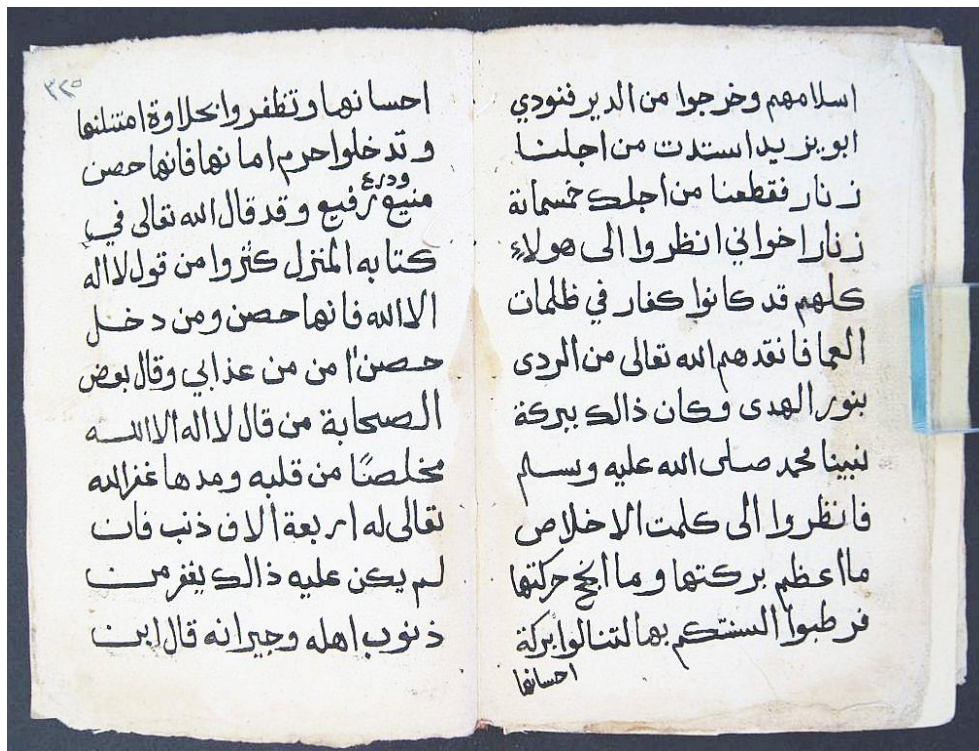 اسلامهم وخرجوا من الدير فنودي
ابو يزيد استدت من اجلنا
زنار فقطعنا من اجلك خمسماىة
زنار اخواني انظروا الى هولاءِ
كلهم قد كانوا كفار في ظلمات
العما فانقدهم الله تعالى من الردى
بنور الهدى وكان ذالك ببركة
نبينا محمد صلى الله عليه وسلم
فانظروا الى كلمت الاخلاص
ما اعظم بركتها وما انجح حركتها
فرطبوا السنتكم بها لتنالوا بركة
احسانها
٣٢٥
احسانها وتظفروا بحلاوة امتنانها
وتدخلوا حرم امانها فانها حصن
منيع ودرع رفيع وقد قال الله تعالى في
كتابه المنزل كثروا من قول لا اله
الا الله فانها حصن ومن دخل
حصن امن من عذابي وقال بعض
الصحابة من قال لا اله الا الله
مخلصًا من قلبه ومدها غفر الله
تعالى له اربعة الاف ذنب فان
لم يكن عليه ذالك يغفر من
ذنوب اهله وجيرانه قال ابن